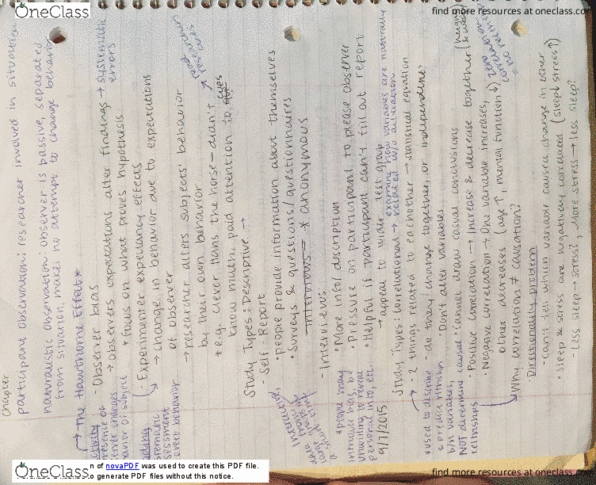 OneClass
find more resources at oneclass.com
Chapter
participant observation: researcher involved in situation
naturalistic observation: observer is passive, separated
from situation, makes no attempt to change behavior
→ * The Hawthorne Effect *
- Observer bias
→ observers expectations alter findings → systematic errors
* focus on what proves hypothesis
· Experimenter expectancy effects
→ change in behavior due to expectations
of observer
→ researcher alters subjects' behavior
by their own behavior
* e.g. clever Hans the horse - didn't
know math, paid attention to
Study Types: Descriptive →
- Self-Report
· people provide information about themselves
· Surveys & questions/questionnaires
* anonymous
- Interviews
* More info/descriptive
· Pressure on participant to please observer
· Helpful if participant can't fill out report
→ appeal to wider test group
9/7/2015
Study Types: Correlational → examine how variables are naturally
related w/o alteration
- 2 things related to each other → statistical equation
- do they change together, or independent?
· Don't alter variables
· Cannot draw casual conclusions
· Positive Correlation → Increase & decrease together
· Negative correlation → One variable increases,
other decreases (age ↑, mental function ↓)
Zero correlation
Why correlation ≠ causation?
Directionality problem
· can't tell which variable caused change in other
· sleep & stress are negatively correlated (sleep↓ stress↑)
Less sleep → stress? More stress → less sleep?
OneClass
n of novaPDF was used to create this PDF file.
o generate PDF files without this notice.
find more resources at oneclass.com